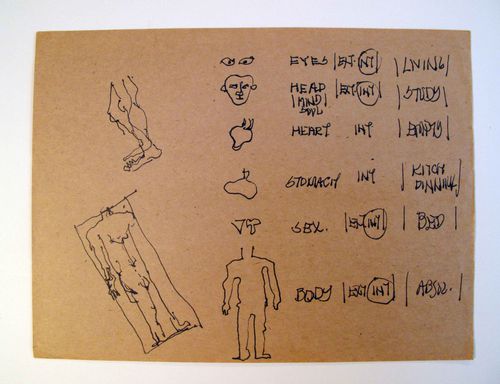 EYES |EXT.INT| |LIVING|
HEAD |EXT.INT| |STUDY|
|MIND
SOUL
HEART INT |EMPTY|
STOMACH INT |KITCH
DINNING|
SEX. |EXT.INT| |BED|
BODY |EXT.INT| |ABSOL.|